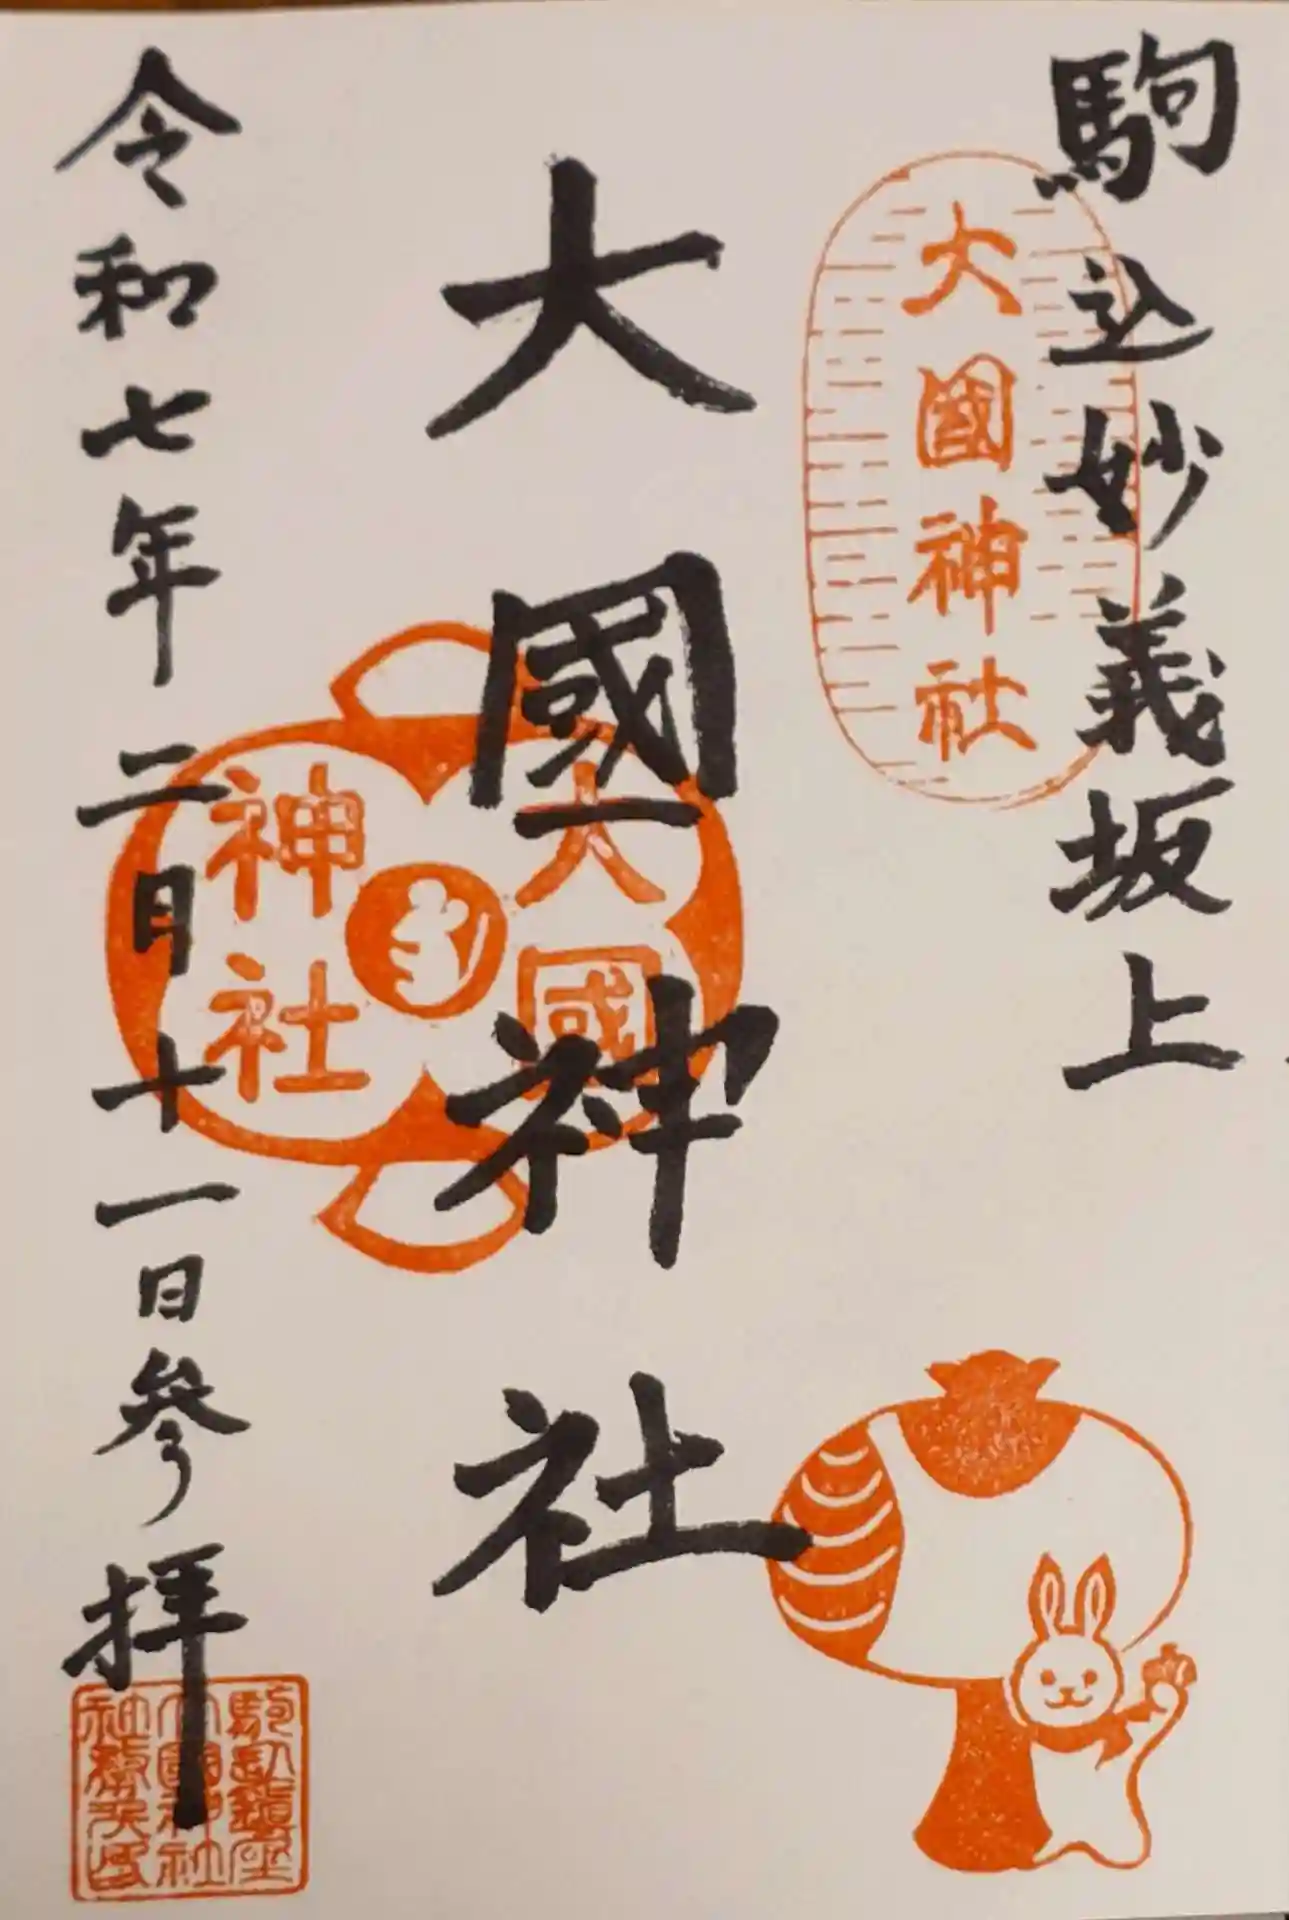 駒込妙義坂上
大國神社
大國神社
大國
神社
令和七年二月十一日参拝
駒込鎮座
大國神社